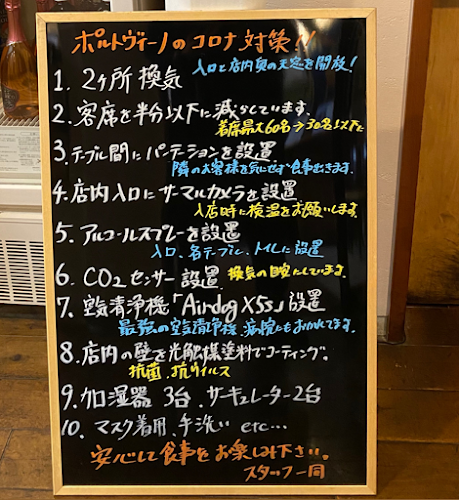 ポルトヴィーノのコロナ対策!!
1. 2ヶ所換気 入口と店内奥の天窓を開放!
2. 客席を半分以下に減らしています。
着席最大60名→30名以下に
3. テーブル間にパーテーションを設置
隣のお客様を気にせず食事出きます。
4. 店内入口にサーマルカメラを設置
入店時に検温をお願いします。
5. アルコールスプレーを設置
入口、各テーブル、トイレに設置
6. CO2センサー設置 換気の目安にしています。
7. 空気清浄機「Airdog X5s」設置
最強の空気清浄機 病院にもおかれてます。
8. 店内の壁を光触媒塗料でコーティング。
抗菌、抗ウイルス
9. 加湿器 3台、サーキュレーター2台
10. マスク着用、手洗い etc…
安心して食事をお楽しみ下さい。
スタッフ一同